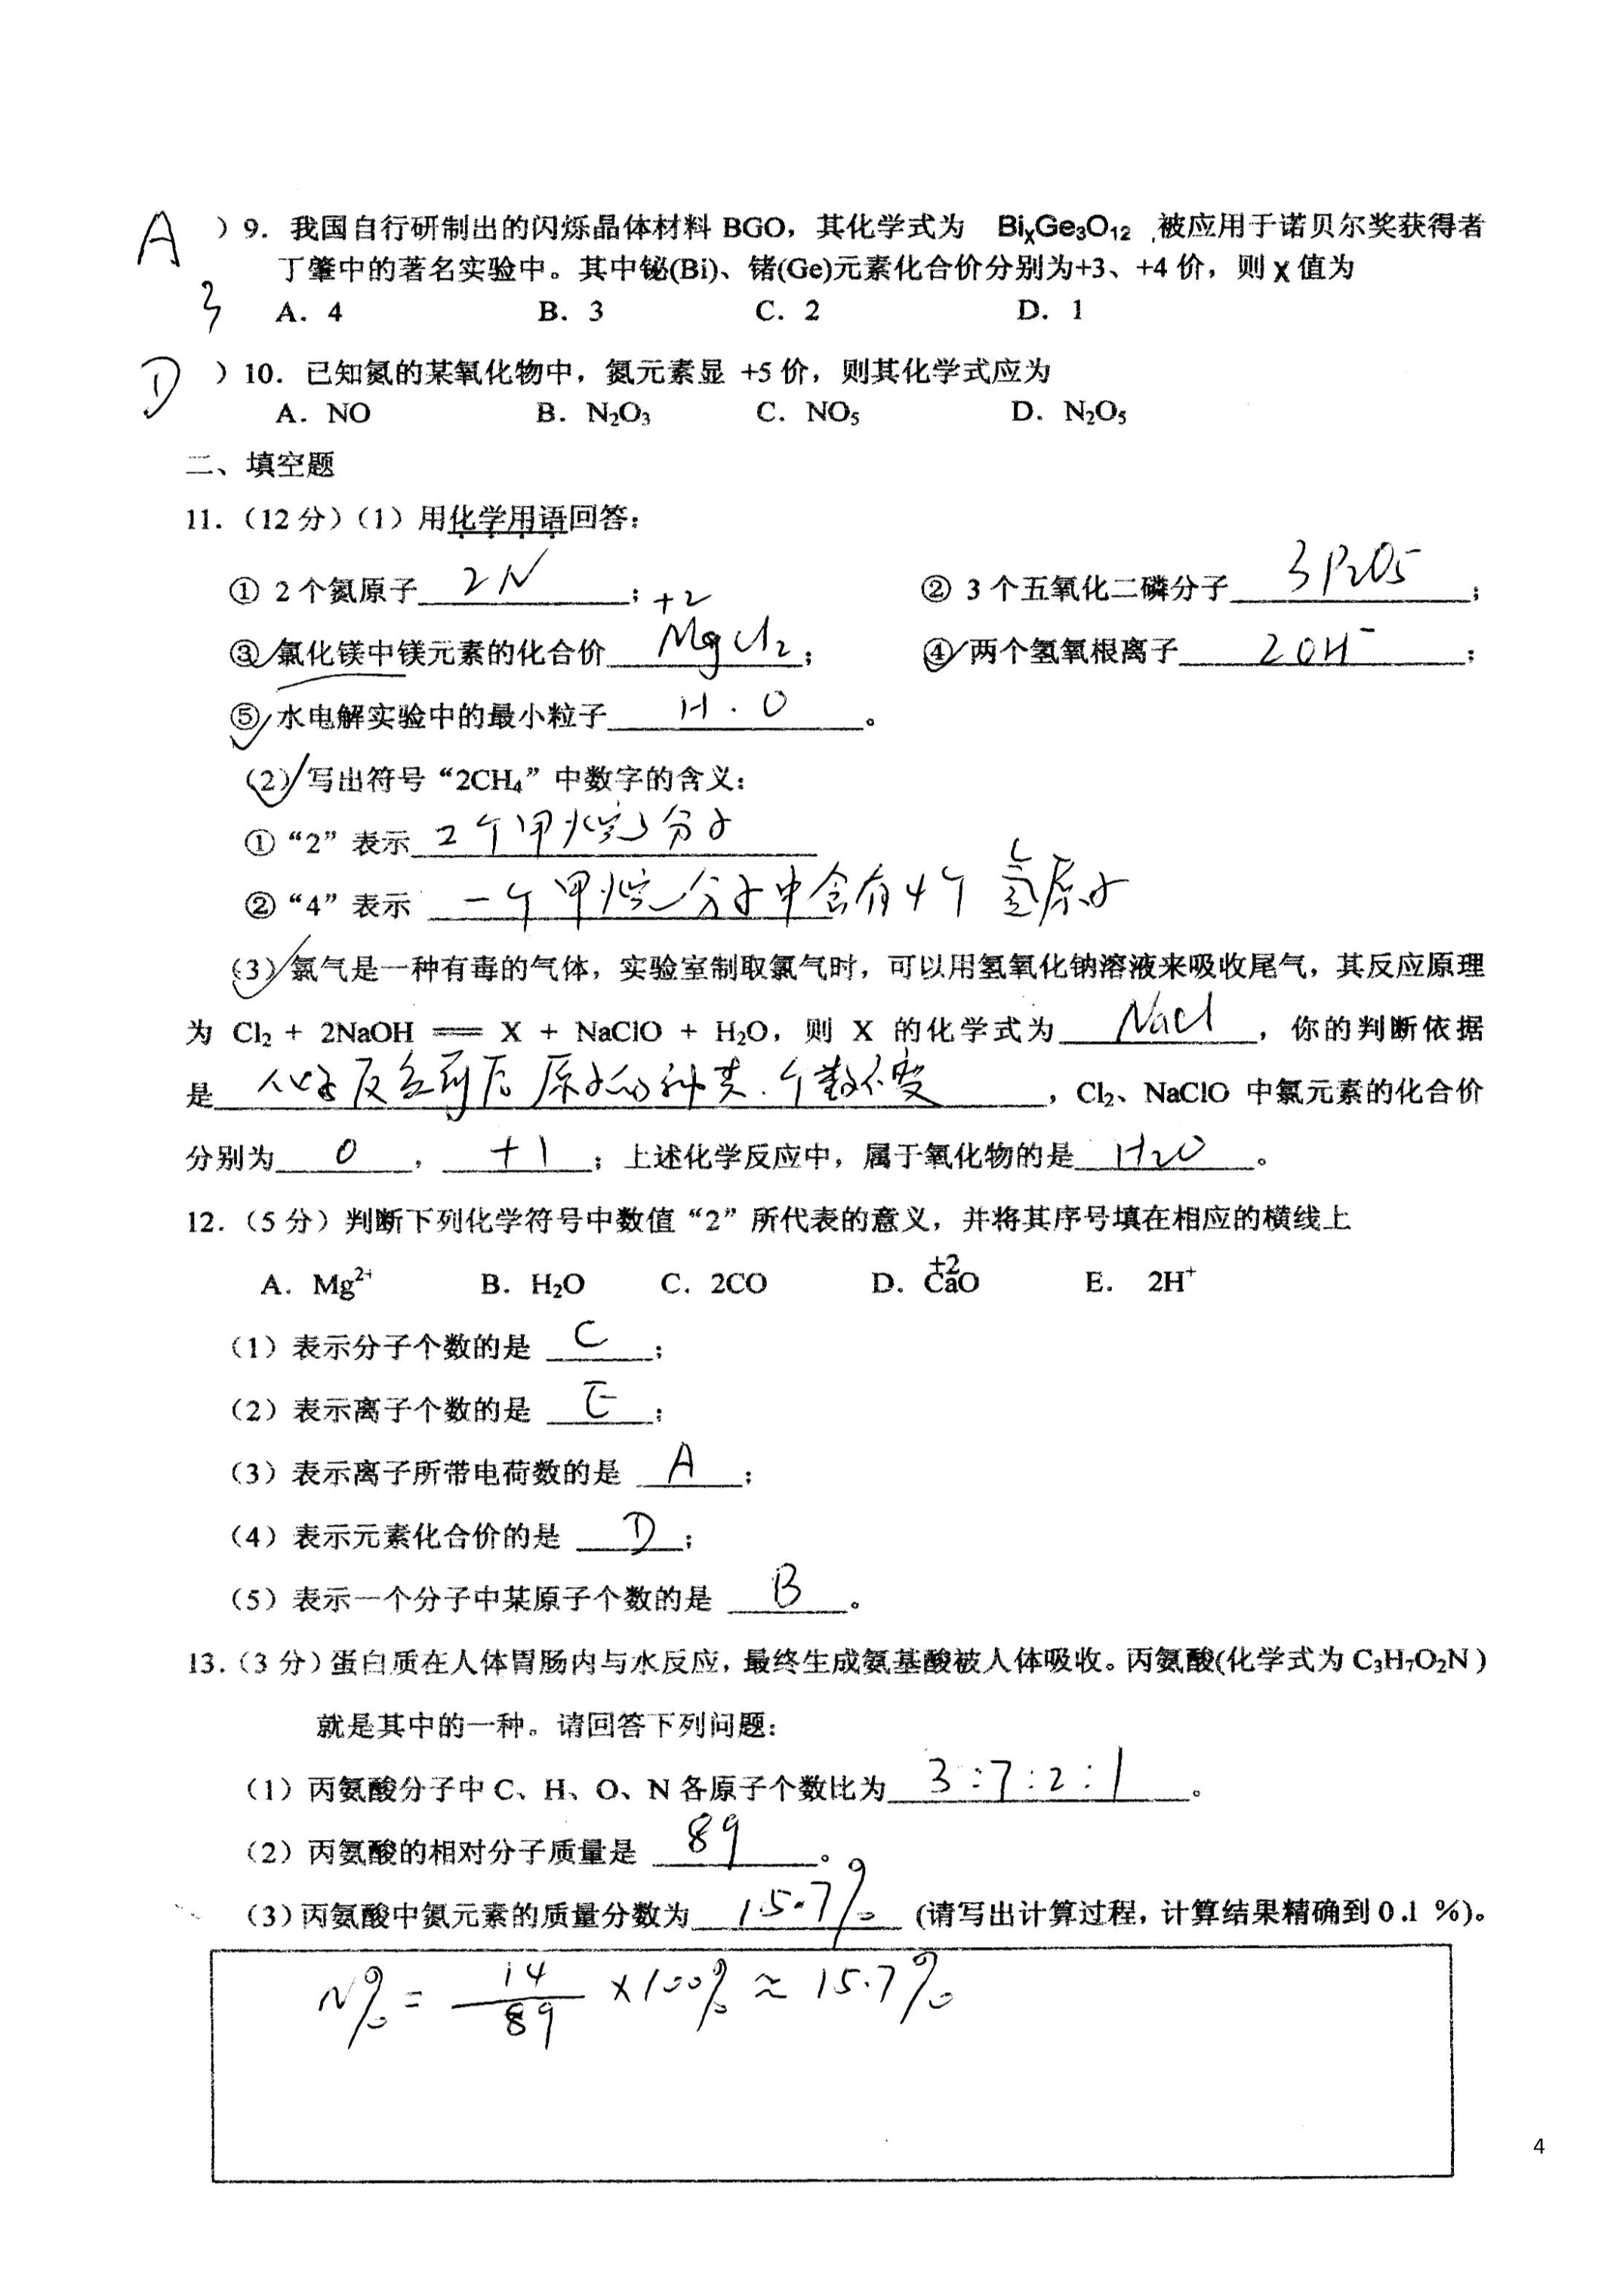 A ）9．我国自行研制出的闪烁晶体材料 BGO，其化学式为 BiₓGe₃O₁₂ ,被应用于诺贝尔奖获得者
丁肇中的著名实验中。其中铋(Bi)、锗(Ge)元素化合价分别为+3、+4 价，则 x 值为
3 A．4 B．3 C．2 D．1
D ）10．已知氮的某氧化物中，氮元素显 +5 价，则其化学式应为
A．NO B．N₂O₃ C．NO₅ D．N₂O₅
二、填空题
11．（12 分）（1）用化学用语回答：
① 2 个氮原子 2N ； ② 3 个五氧化二磷分子 3P₂O₅ ；
+2
③ 氯化镁中镁元素的化合价 MgCl₂ ； ④ 两个氢氧根离子 2OH⁻ ；
⑤ 水电解实验中的最小粒子 H . O 。
（2）写出符号“2CH₄”中数字的含义：
①“2”表示 2个甲烷分子
②“4”表示 一个甲烷分子中含有4个氢原子
（3）氯气是一种有毒的气体，实验室制取氯气时，可以用氢氧化钠溶液来吸收尾气，其反应原理
为 Cl₂ + 2NaOH == X + NaClO + H₂O，则 X 的化学式为 NaCl ，你的判断依据
是 化学反应前后原子的种类.个数不变 ，Cl₂、NaClO 中氯元素的化合价
分别为 0 ， +1 ；上述化学反应中，属于氧化物的是 H₂O 。
12．（5 分）判断下列化学符号中数值“2”所代表的意义，并将其序号填在相应的横线上
+2
A．Mg²⁺ B．H₂O C．2CO D．CaO E． 2H⁺
（1）表示分子个数的是 C ；
（2）表示离子个数的是 E ；
（3）表示离子所带电荷数的是 A ；
（4）表示元素化合价的是 D ；
（5）表示一个分子中某原子个数的是 B 。
13．（3 分）蛋白质在人体胃肠内与水反应，最终生成氨基酸被人体吸收。丙氨酸(化学式为 C₃H₇O₂N )
就是其中的一种。请回答下列问题：
（1）丙氨酸分子中 C、H、O、N 各原子个数比为 3:7:2:1 。
（2）丙氨酸的相对分子质量是 89 。
（3）丙氨酸中氮元素的质量分数为 15.7% (请写出计算过程，计算结果精确到 0.1 %)。
N% = 14/89 ×100% ≈ 15.7%
4